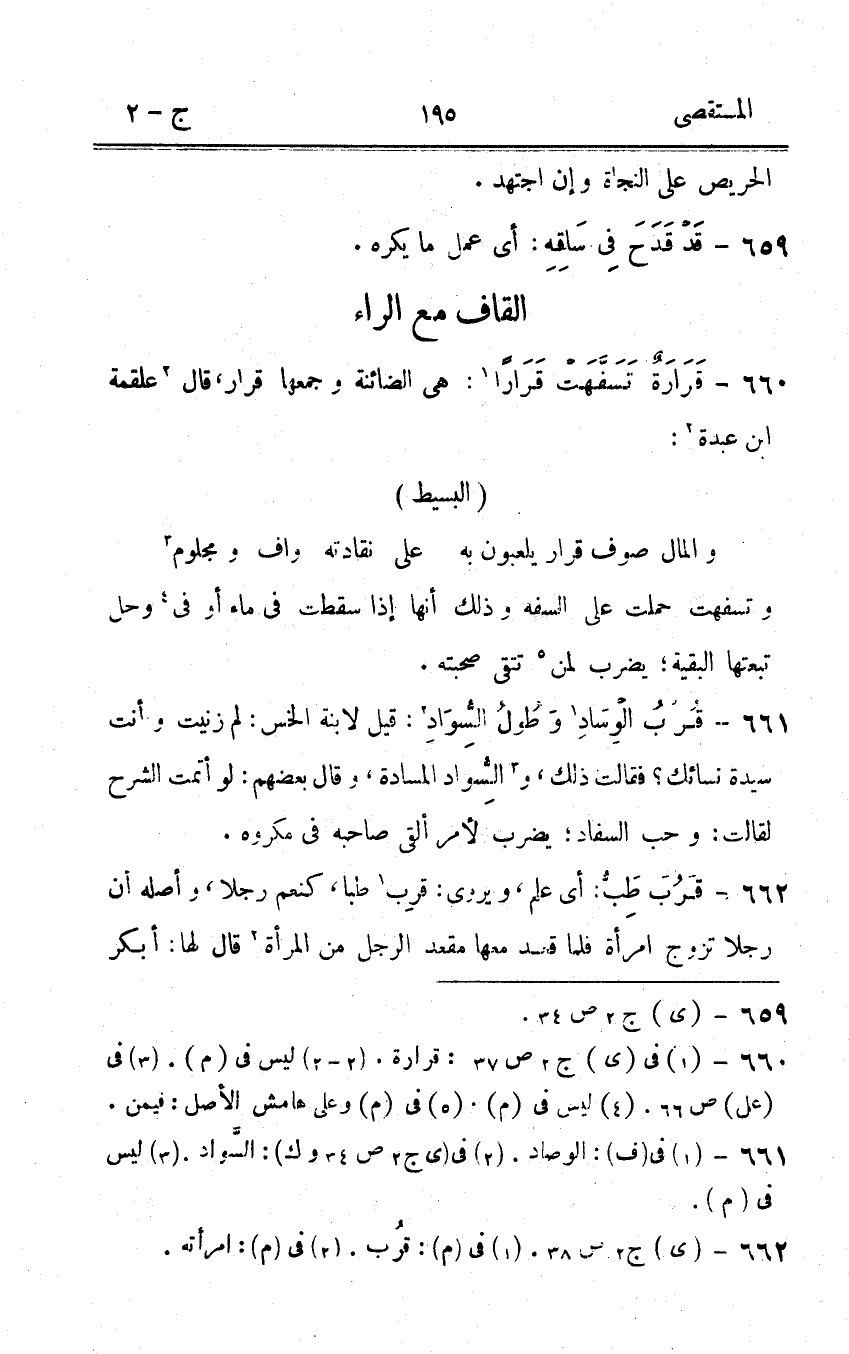 المستقصى ١٩٥ ج - ٢
الحريص على النجاة و إن اجتهد .
٦٥٩ - قَدْ قَدَحَ فِى سَاقِهِ : أى عمل ما يكره .
القاف مع الراء
٦٦٠ - قَرَارَةٌ تَسَفَّهَتْ قَرَارًا ١ : هى الضائنة و جمعها قرار، قال ٢ علقمة
ابن عبدة ٢ :
( البسيط )
و المال صوف قرار يلعبون به على نقادته واف و مجلوم ٣
و تسفهت حملت على السفه و ذلك أنها إذا سقطت فى ماء أو فى ٤ وحل
تبعتها البقية؛ يضرب لمن ٥ تتقى صحبته .
٦٦١ - قُرْبُ الْوِسَادِ ١ وَ طُولُ السِّوَادِ ٢ : قيل لابنة الخس : لم زنيت و أنت
سيدة نسائك؟ فقالت ذلك، و ٣ السِّواد المسادة، و قال بعضهم : لو أتمت الشرح
لقالت : و حب السفاد؛ يضرب لأمر ألقى صاحبه فى مكروه .
٦٦٢ - قَرُبَ طِبُّ : أى علم، و يروى : قرب ١ طبا، كنعم رجلا، و أصله أن
رجلا تزوج امرأة فلما قعد معها مقعد الرجل من المرأة ٢ قال لها : أبكر
٦٥٩ - (ى) ج ٢ ص ٣٤ .
٦٦٠ - (١) فى (ى) ج ٢ ص ٣٧ : قرارة . (٢-٢) ليس فى (م) . (٣) فى
(عل) ص ٦٦ . (٤) ليس فى (م) . (٥) فى (م) وعلى هامش الأصل : فيمن .
٦٦١ - (١) فى (ف) : الوصاد . (٢) فى (ى ج ٢ ص ٣٤ و ك) : السَّواد . (٣) ليس
فى (م) .
٦٦٢ - (ى) ج ٢ ص ٣٨ . (١) فى (م) : قُرب . (٢) فى (م) : امرأته .